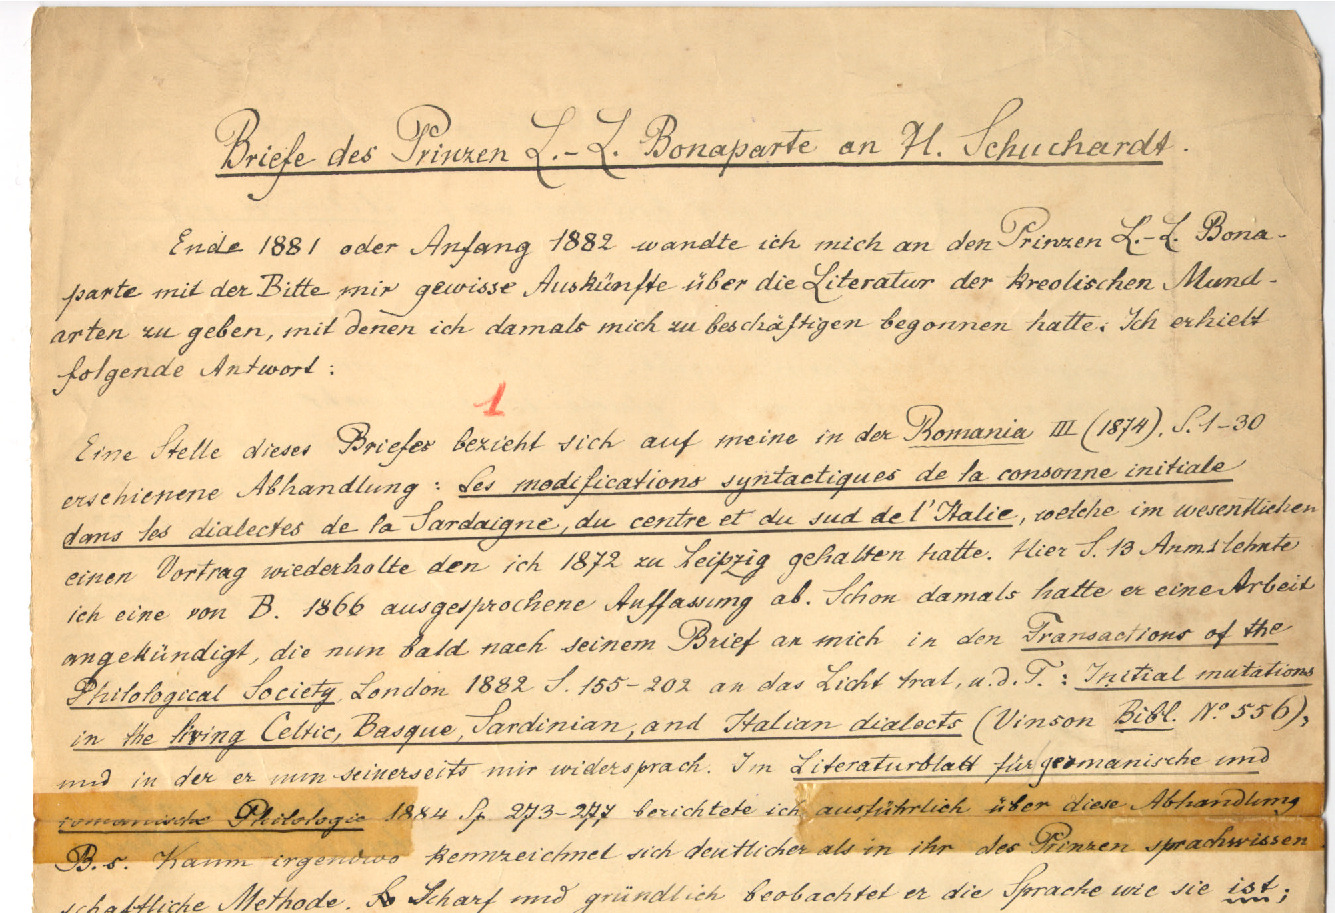 Briefe des Prinzen L.-L. Bonaparte an H. Schuchardt.
Ende 1881 oder Anfang 1882 wandte ich mich an den Prinzen L.-L. Bona-
parte mit der Bitte mir gewisse Auskünfte über die Literatur der kreolischen Mund-
arten zu geben, mit denen ich damals mich zu beschäftigen begonnen hatte. Ich erhielt
folgende Antwort:
1
Eine Stelle dieses Briefes bezieht sich auf meine in der Romania III (1874). S. 1-30
erschienene Abhandlung: Les modifications syntactiques de la consonne initiale
dans les dialectes de la Sardaigne, du centre et du sud de l'Italie, welche im wesentlichen
einen Vortrag wiederholte den ich 1872 zu Leipzig gehalten hatte. Hier S. 13 Anm. 1 lehnte
ich eine von B. 1866 ausgesprochene Auffassung ab. Schon damals hatte er eine Arbeit
angekündigt, die nun bald nach seinem Brief an mich in den Transactions of the
Philological Society, London 1882 S. 155-202 an das Licht trat, u.d.T.: Initial mutations
in the living Celtic, Basque, Sardinian, and Italian dialects (Vinson Bibl. No 556),
und in der er nun seinerseits mir widersprach. Im Literaturblatt für germanische und
romanische Philologie 1884 Sp. 273-277 berichtete ich ausführlich über diese Abhandlung
B.s. Kaum irgendwo kennzeichnet sich deutlicher als in ihr des Prinzen sprachwissen
schaftliche Methode. Scharf und gründlich beobachtet er die Sprache wie sie ist;